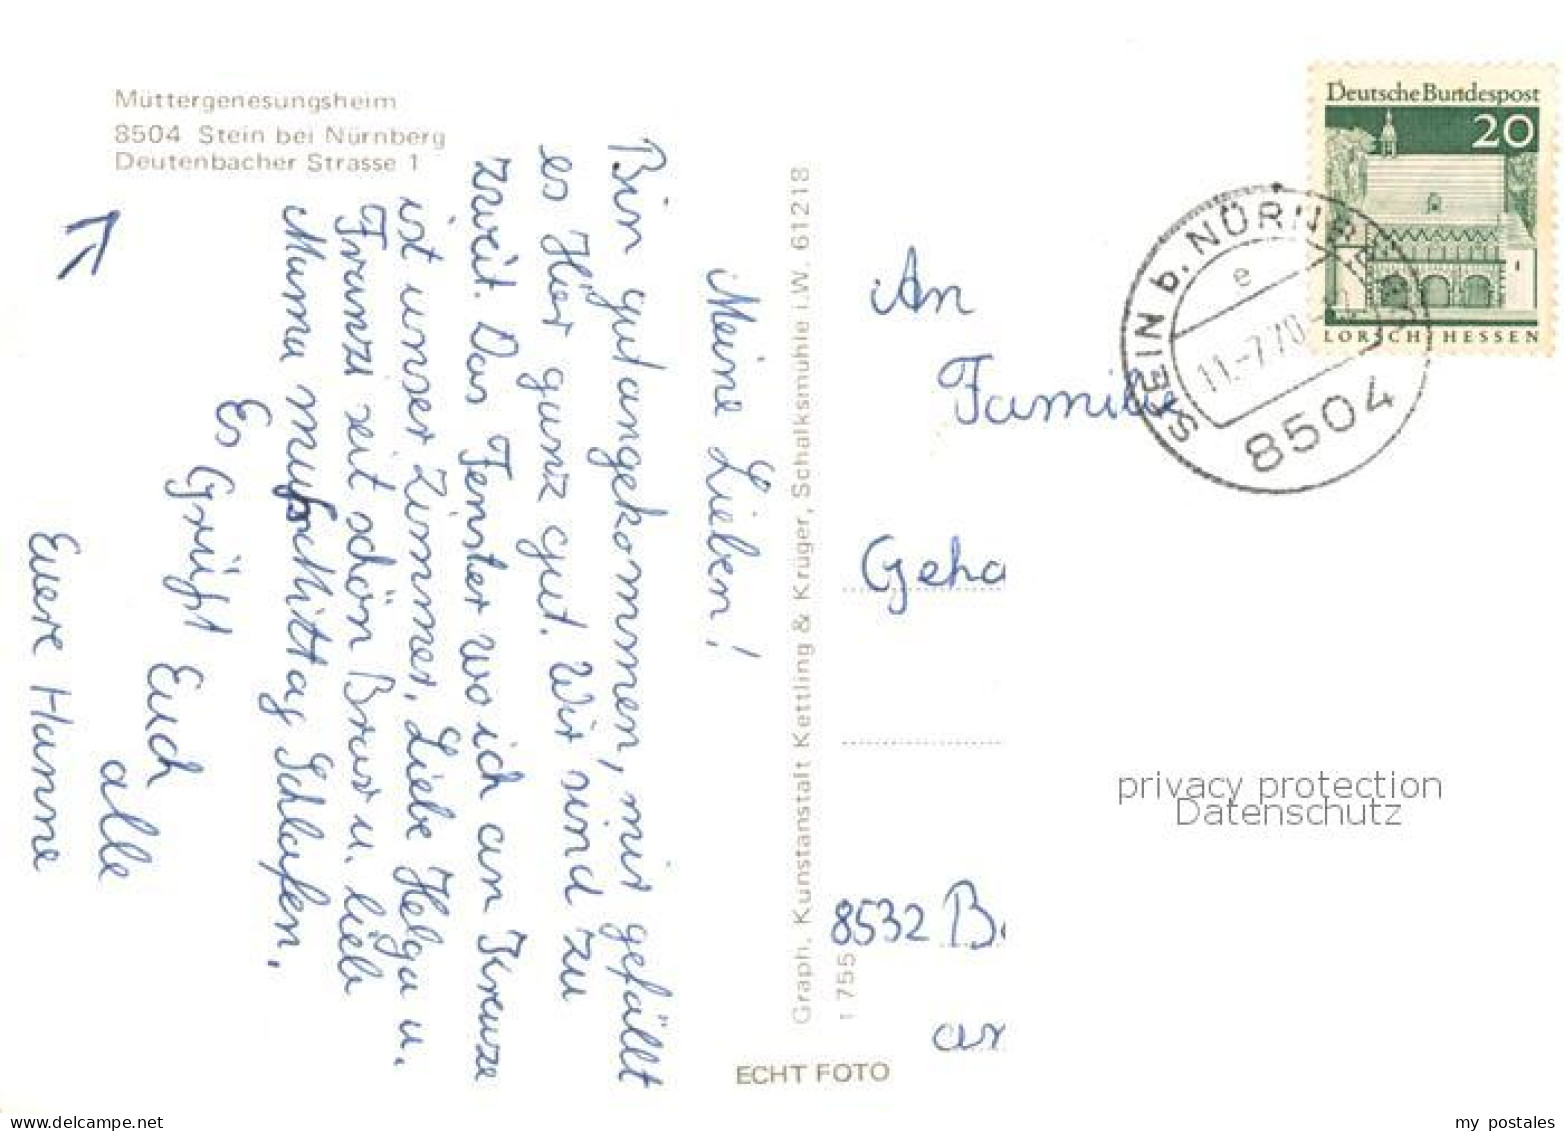 Müttergenesungsheim
8504 Stein bei Nürnberg
Deutenbacher Strasse 1
Meine Lieben!
Bin gut angekommen, mir gefällt
es Hier ganz gut. Wir sind zu
zweit. Das Fenster wo ich an Kreuze
ist unser Zimmer. Liebe Helga u.
Franzi seit schön Brav u. lieb
Mama muß Mittag Schlafen.
Es Grüßt Euch
alle
Euere Hanne
Graph. Kunstanstalt Kettling & Krüger, Schalksmühle i.W. 61218
1755
ECHT FOTO
Deutsche Bundespost
20
LORSCH HESSEN
STEIN b. NÜRNBERG
e
11.-7.70
8504
An
Familie
8532 B
privacy protection
Datenschutz
my postales